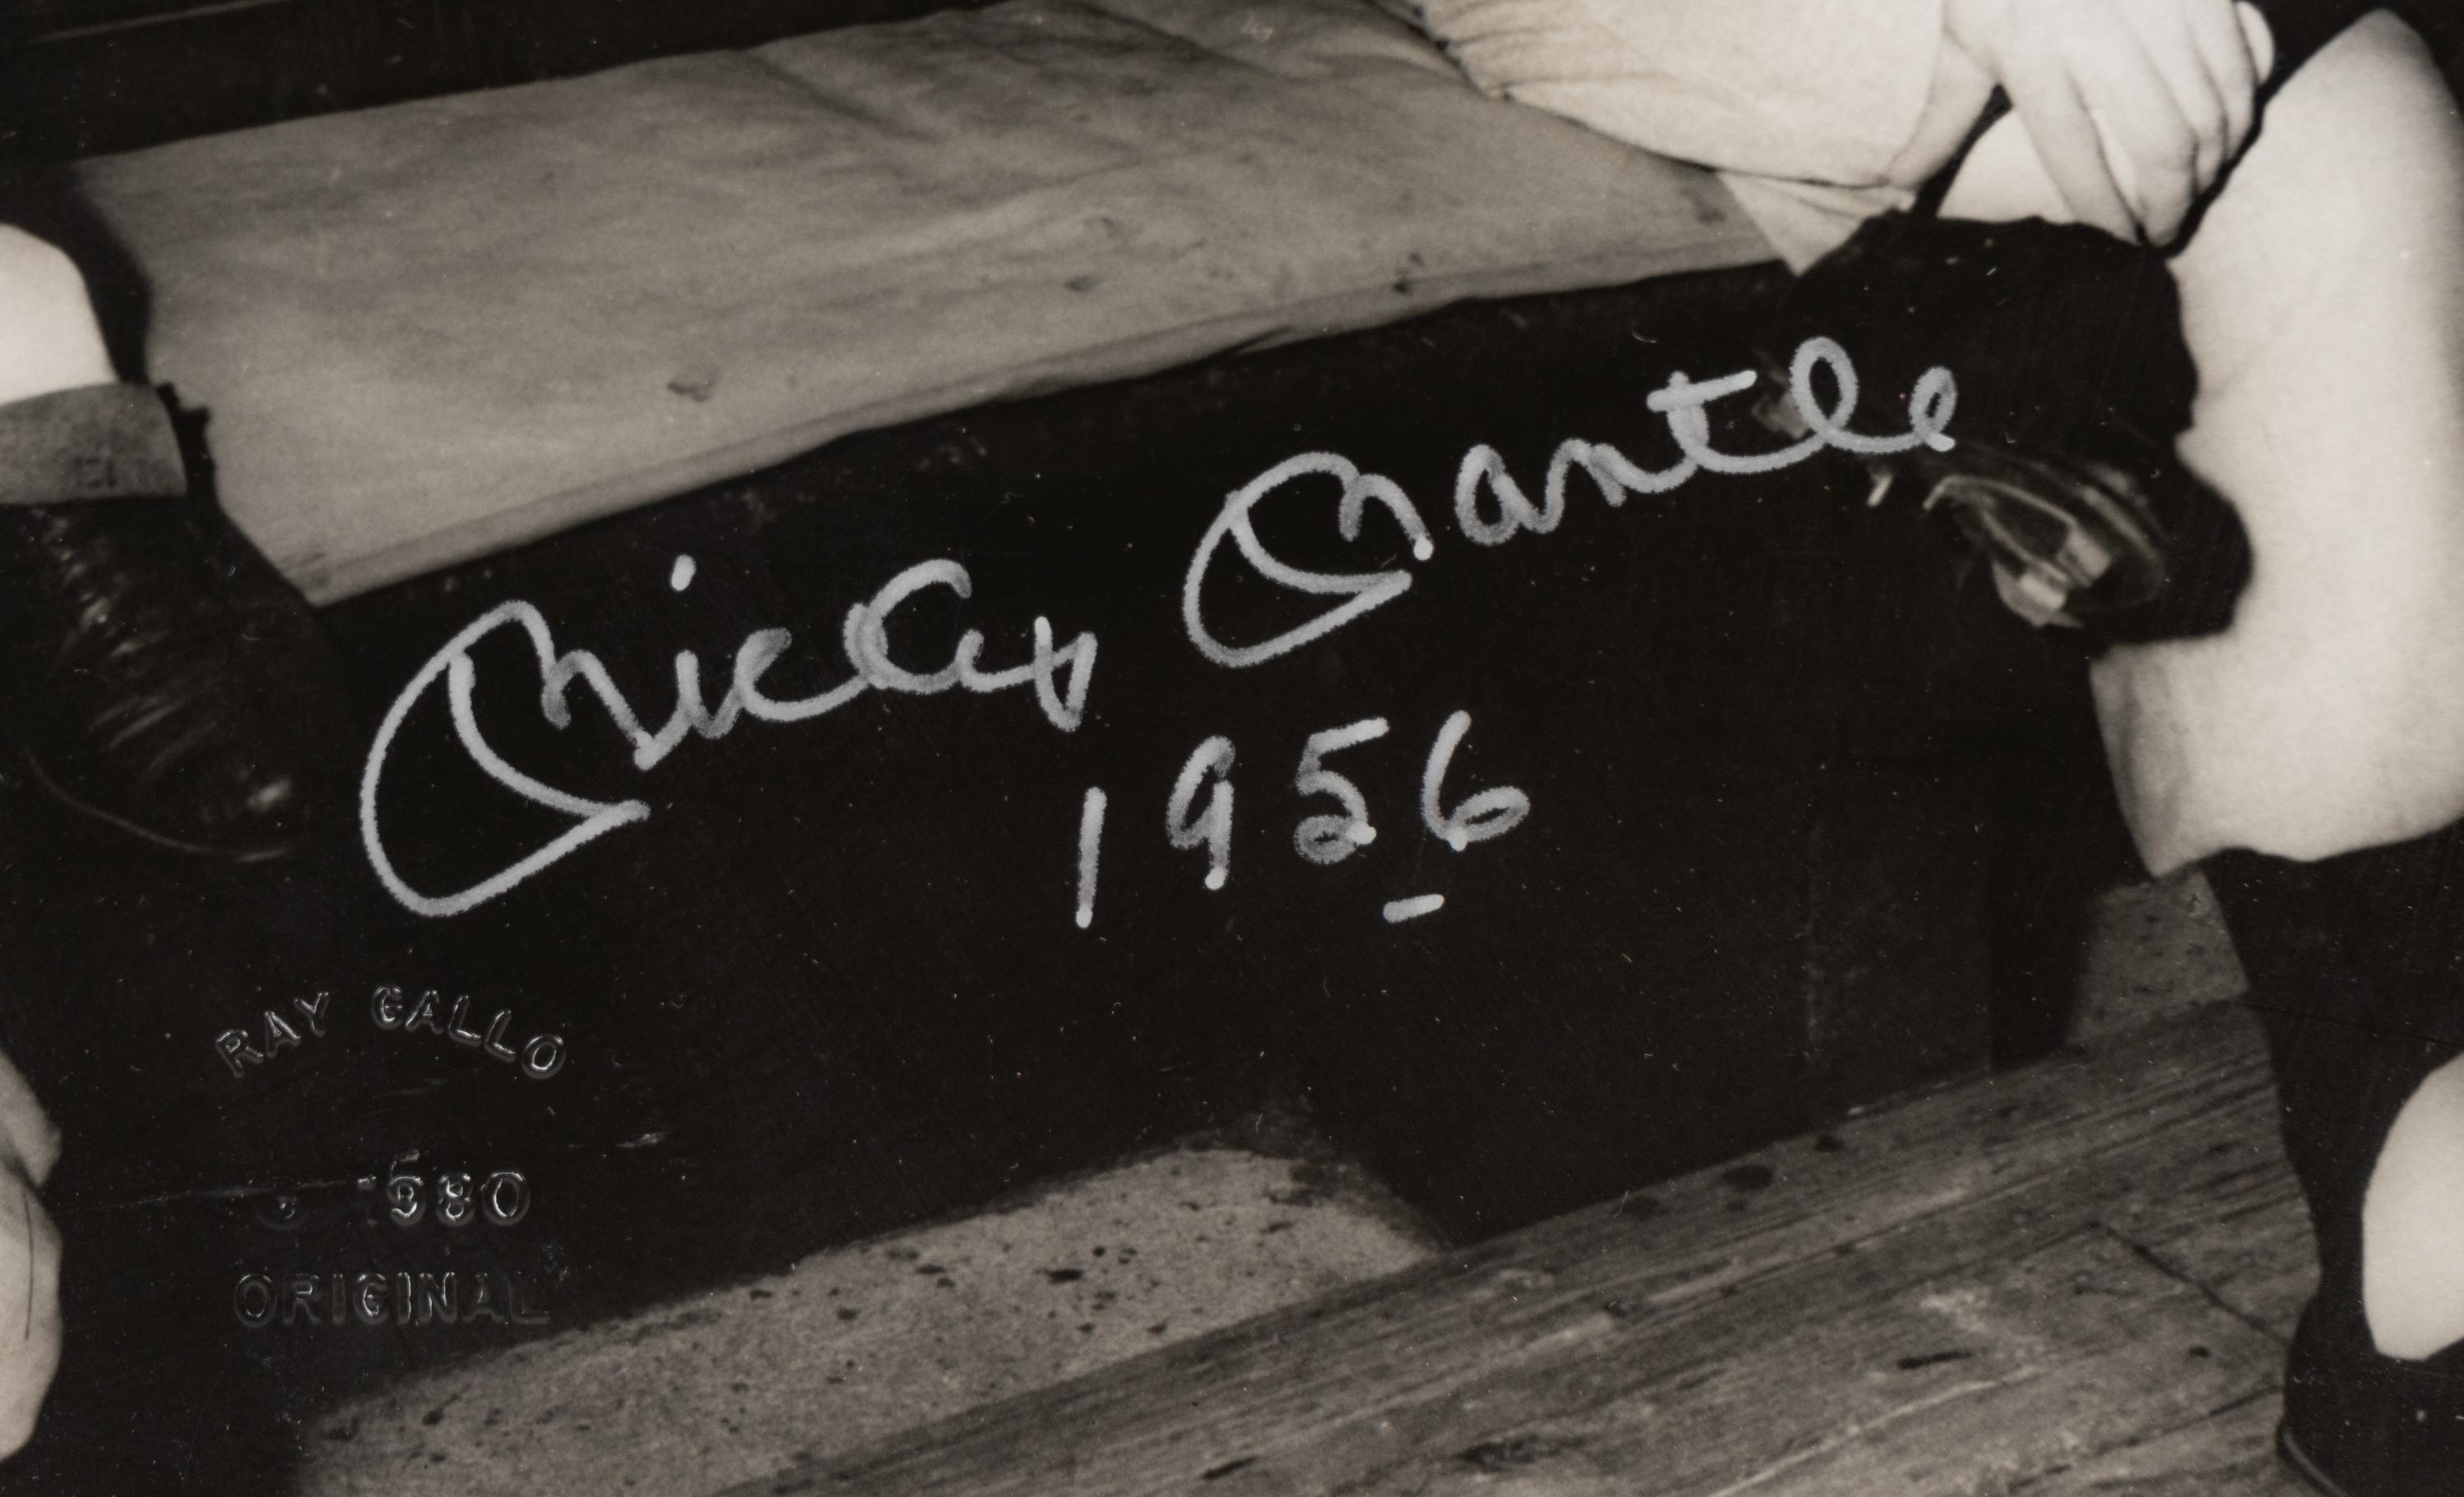 Mickey Mantle
1956
RAY GALLO
ORIGINAL